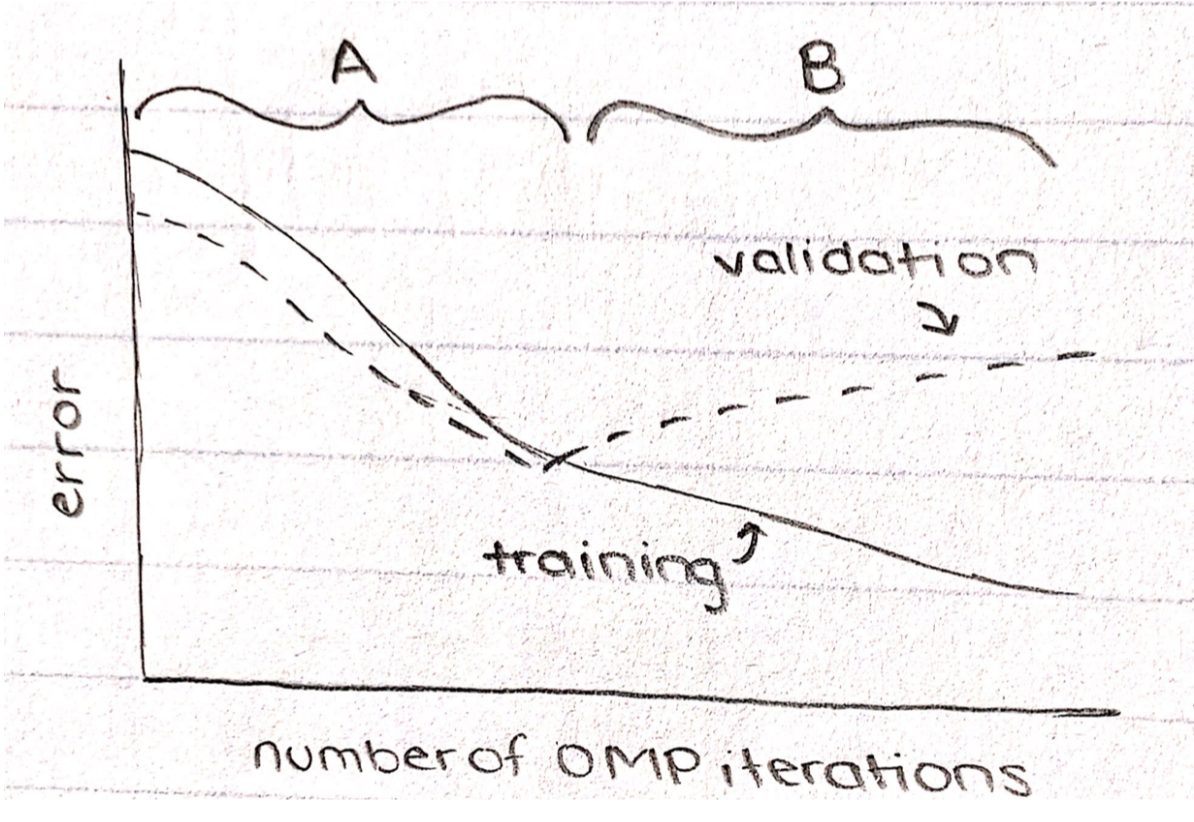 A
B
validation
error
training
number of OMP iterations